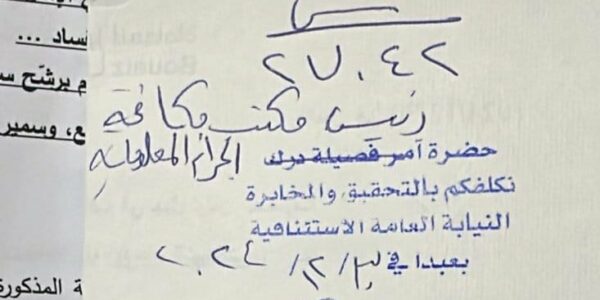 ساد ...
م يرشّح س
ع، وسمير
٢٧٠٤٢
رئيس مكتب مكافحة
الجرائم المعلوماتية
حضرة آمر فصيلة درك
نكلفكم بالتحقيق والمخابرة
النيابة العامة الاستئنافية
بعبدا في ٢٠٢٤
ة المذكورة